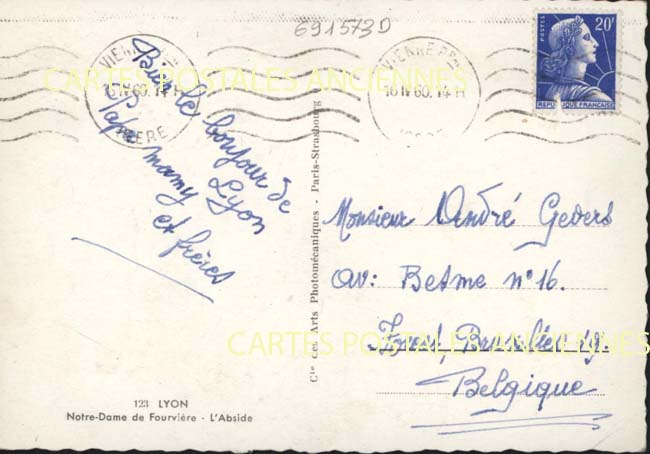 691573D
VIENNE PPAL
16 IV 60. 14 H
ISERE
VIENNE PPAL
16 IV 60. 14 H
POSTES
20F
REPUBLIQUE FRANCAISE
CARTES POSTALES ANCIENNES
Bien le bonjour de
Lyon
Papa mamy
et frères
Cie des Arts Photomécaniques - Paris-Strasbourg
Monsieur André Gevers
av: Besme n° 16.
Forest, Bruxelles
Belgique
CARTES POSTALES ANCIENNES
123 LYON
Notre-Dame de Fourvière - L'Abside